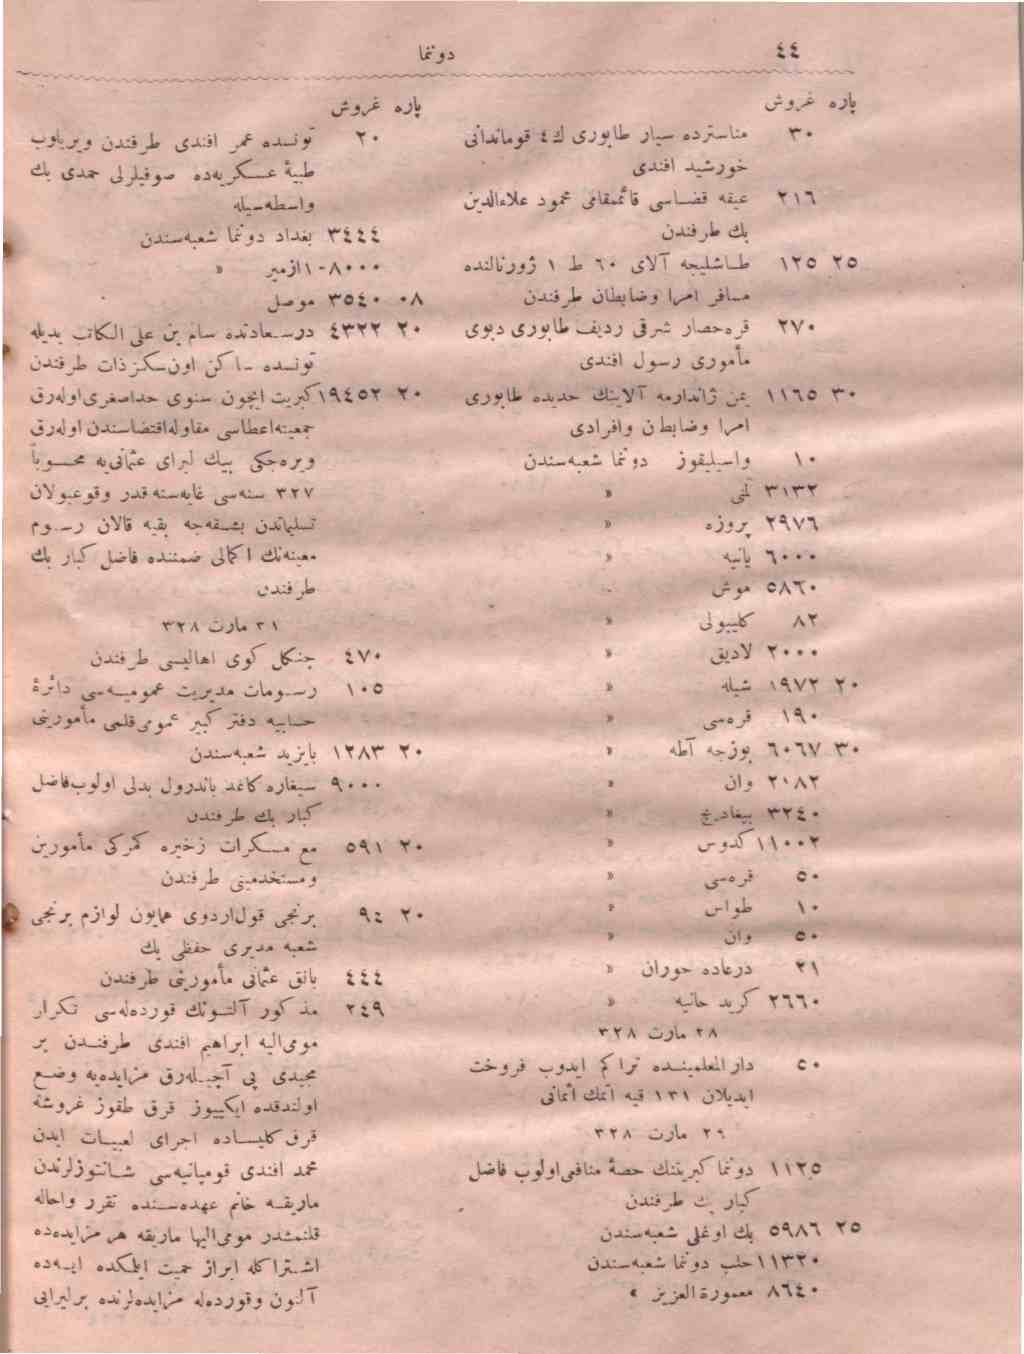 ٤٤
دوننما
پاره غروش
٣٠ مناسترده سیار طابوری ك٤ قوماندانی
خورشید افندی
٢١٦ عیقه قضاسی قائممقامی محمود علاءالدین
بك طرفندن
٢٥ ١٢٥ طاشلیجه آلای ٦٠ ط ١ ژورنالنده
مسافر امرا وضابطان طرفندن
٢٧٠ قره‌حصار شرقی ردیف طابوری دبوی
مأموری رسول افندی
٣٠ ١١٦٥ یمن ژاندارمه آلاینك حدیده طابوری
امرا وضابطان وافرادی
١٠ واسیلیقوز دوننما شعبه‌سندن
٣١٣٢ »
٢٩٧٦ پروزه »
٦٠٠٠ یانیه »
٥٨٦٠ موش »
٨٢ کلیبولی »
٢٠٠٠ لادیق »
٢٠ ١٩٧٢ شیله »
١٩٠ قره‌سی »
٣٠ ٦٠٦٧ بوزجه آطه »
٢٠٨٢ وان »
٣٢٤٠ بیغادیج »
١١٠٠٢ کدوس »
٥٠ قره‌سی »
١٠ طواس »
٥٠ وان »
٢١ درعاده حوران »
٢٦٦٠ کرید حانیه »
٢٨ مارت ٣٢٨
٥٠ دارالمعلمینده تراکم ایدوب فروخت
ایدیلان ١٣١ قیه اتمك اثمانی
٢٩ مارت ٣٢٨
١١٢٥ دوننما کبریتنك حصهٔ منافعی اولوب فاضل
کبار بك طرفندن
٢٥ ٥٩٨٦ بك اوغلی شعبه‌سندن
١١٣٢٠ حلب دوننما شعبه‌سندن
٨٦٤٠ معمورة العزیز »
پاره غروش
٢٠ تونسده عمر افندی طرفندن ویریلوب
طبیهٔ عسکریه‌ده صوفیلرلی حمدی بك
واسطه‌سیله
٣٤٤٤ بغداد دوننما شعبه‌سندن
١٠٨٠٠٠ ازمیر »
٠٨ ٣٥٤٠ موصل
٢٠ ٤٣٢٢ درسعادتده سالم بن علی الکاتب یدیله
تونسده ساکن اون‌سکز ذات طرفندن
٢٠ ١٩٤٥٢ کبریت ایچون سنوی حداصغری اوله‌رق
جمعیته اعطاسی مقاوله اقتضاسندن اوله‌رق
ویره‌جکی بیك لیرای عثمانی‌یه محسوباً
٣٢٧ سنه‌سی غایه‌سنه قدر وقوعبولان
تسلیماتدن بشقه‌جه بقیه قالان رسوم
معینه‌نك اکمالی ضمننده فاضل کبار بك
طرفندن
٣١ مارت ٣٢٨
٤٧٠ چنکل کوی اهالیسی طرفندن
١٠٥ رسومات مدیریت عمومیه‌سی دائرهٔ
حسابیه دفتر کبیر عمومی قلمی مأمورینی
٢٠ ١٢٨٣ بایزید شعبه‌سندن
٩٠٠٠ سیغاره کاغد باندرول بدلی اولوب فاضل
کبار بك طرفندن
٢٠ ٥٩١ مع مسکرات زخیره کمرکی مأمورین
ومستخدمینی طرفندن
٢٠ ٩٤ برنجی قول‌اردوی همایون لوازم برنجی
شعبه مدیری حفظی بك
٤٤٤ بانق عثمانی مأمورینی طرفندن
٢٤٩ مذکور آلتونك قورده‌له‌سی تکرار
مومی‌الیه ابراهیم افندی طرفندن بر
مجیدی پی آچیله‌رق مزایده‌یه وضع
اولندقده ایکییوز قرق طقوز غروشه
قرق‌کلیساده اجرای لعبیات ایدن
محمد افندی قومپانیه‌سی شانتوزلرندن
ماریقه خانم عهده‌سنده تقرر واحاله
قلنمشدر مومی‌الیها ماریقه هر مزایده‌ده
اشتراکله ابراز حمیت ایلمکده ایسه‌ده
آلتون وقورده‌له مزایده‌لرنده بر لیرایی